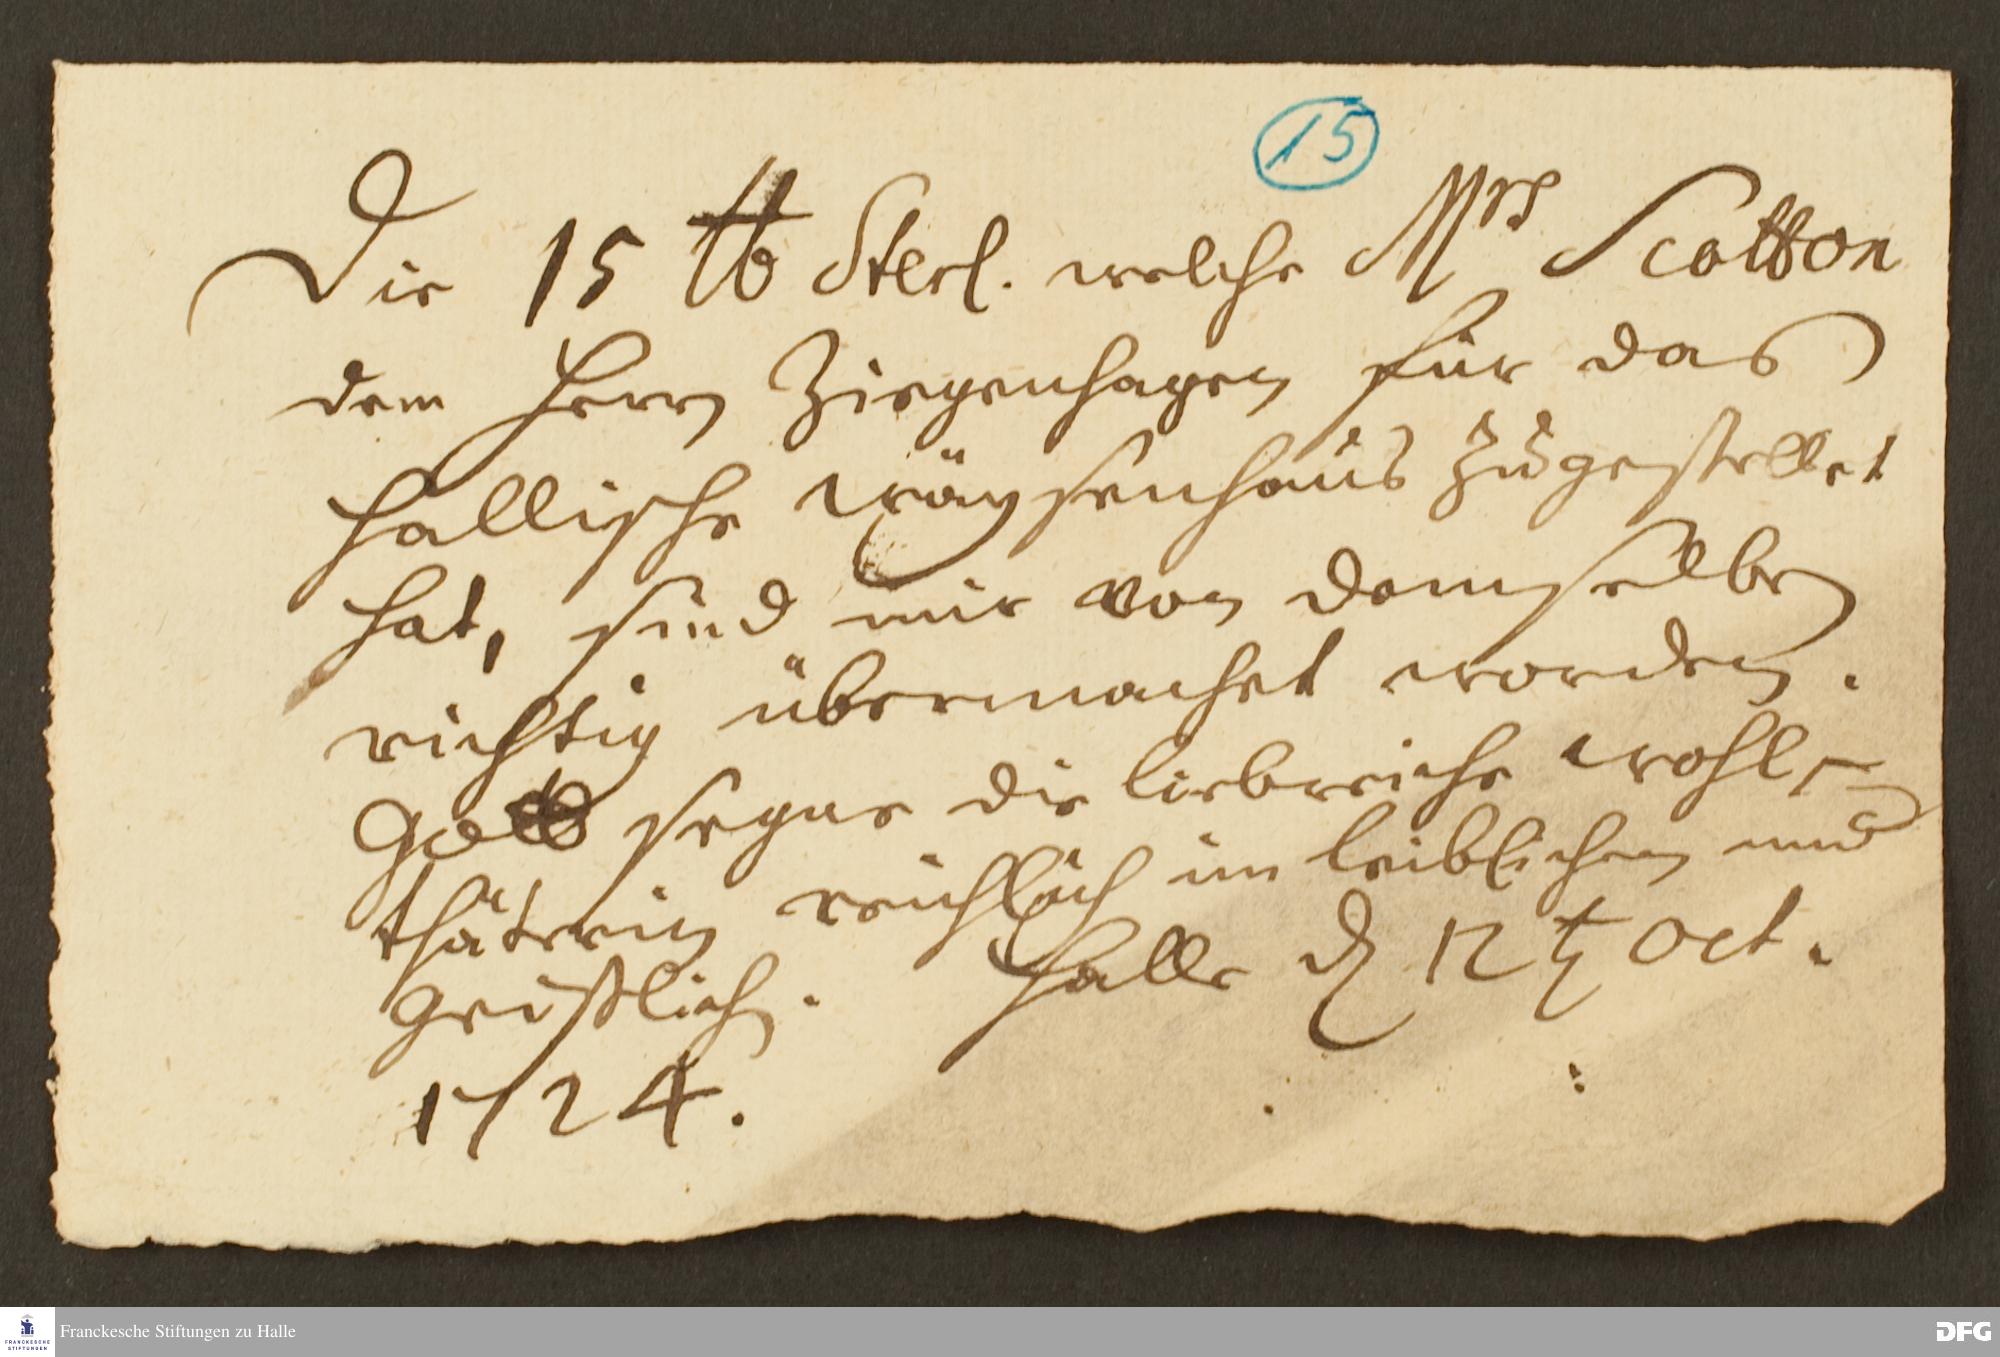 15
Die 15 ℔ Sterl. welche Mrs Scotton
dem Herrn Ziegenhagen für das
Hallische Wäysenhaus zugestellet
hat, sind mir von demselben
richtig übermachet worden.
Gott segne die liebreiche Wohl-
thäterin reichlich im leiblichen und
geistlichen. Halle d 12t Oct.
1724.
FRANCKESCHE
STIFTUNGEN
Franckesche Stiftungen zu Halle
DFG